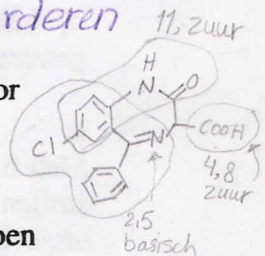 rderen
11, zuur
or
H
N
O
Cl
N
COOH
4,8
zuur
2,5
basisch
pen